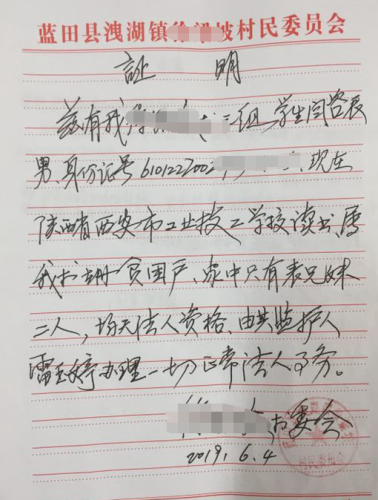 蓝田县洩湖镇 坡村民委员会
证 明
兹有我 三组 学生闫容辰
男、身份证号610122200 、现在
陕西省西安市工业技工学校读书、属
我村 贫困户、家中只有表兄妹
二人，均无法人资格、由其监护人
雷玉婷办理一切正常法人事务。
村委会
2019.6.4
村民委员会